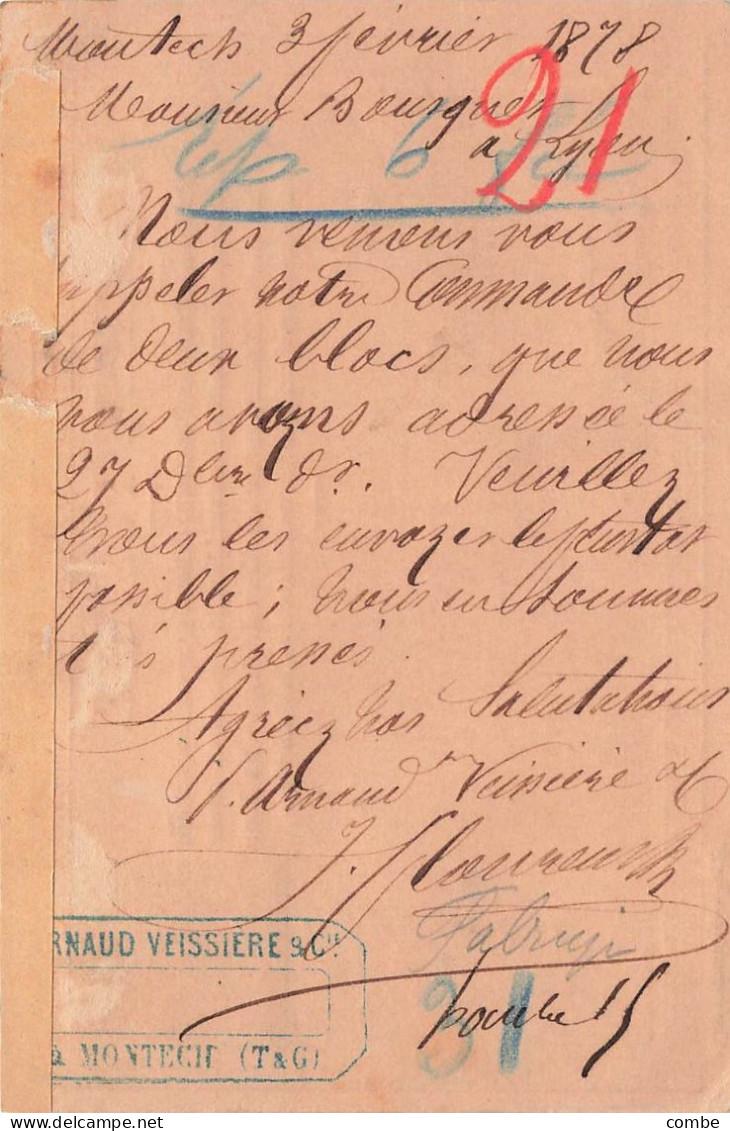 Montech 3 février 1878
21
Monsieur Bourguet
Rép. 6
a Lyon.
Nous venons vous
rappeler notre Commande
de deux blocs, que nous
vous avons adressée le
27 Dbre dr. Veuillez
nous les envoyer le plustot
possible; nous en sommes
très pressés.
Agréez nos Salutations
p. Arnaud Veissière & C
J. Flourens
RNAUD VEISSIERE & Cie
31
à MONTECH (T & G)
combe
combe